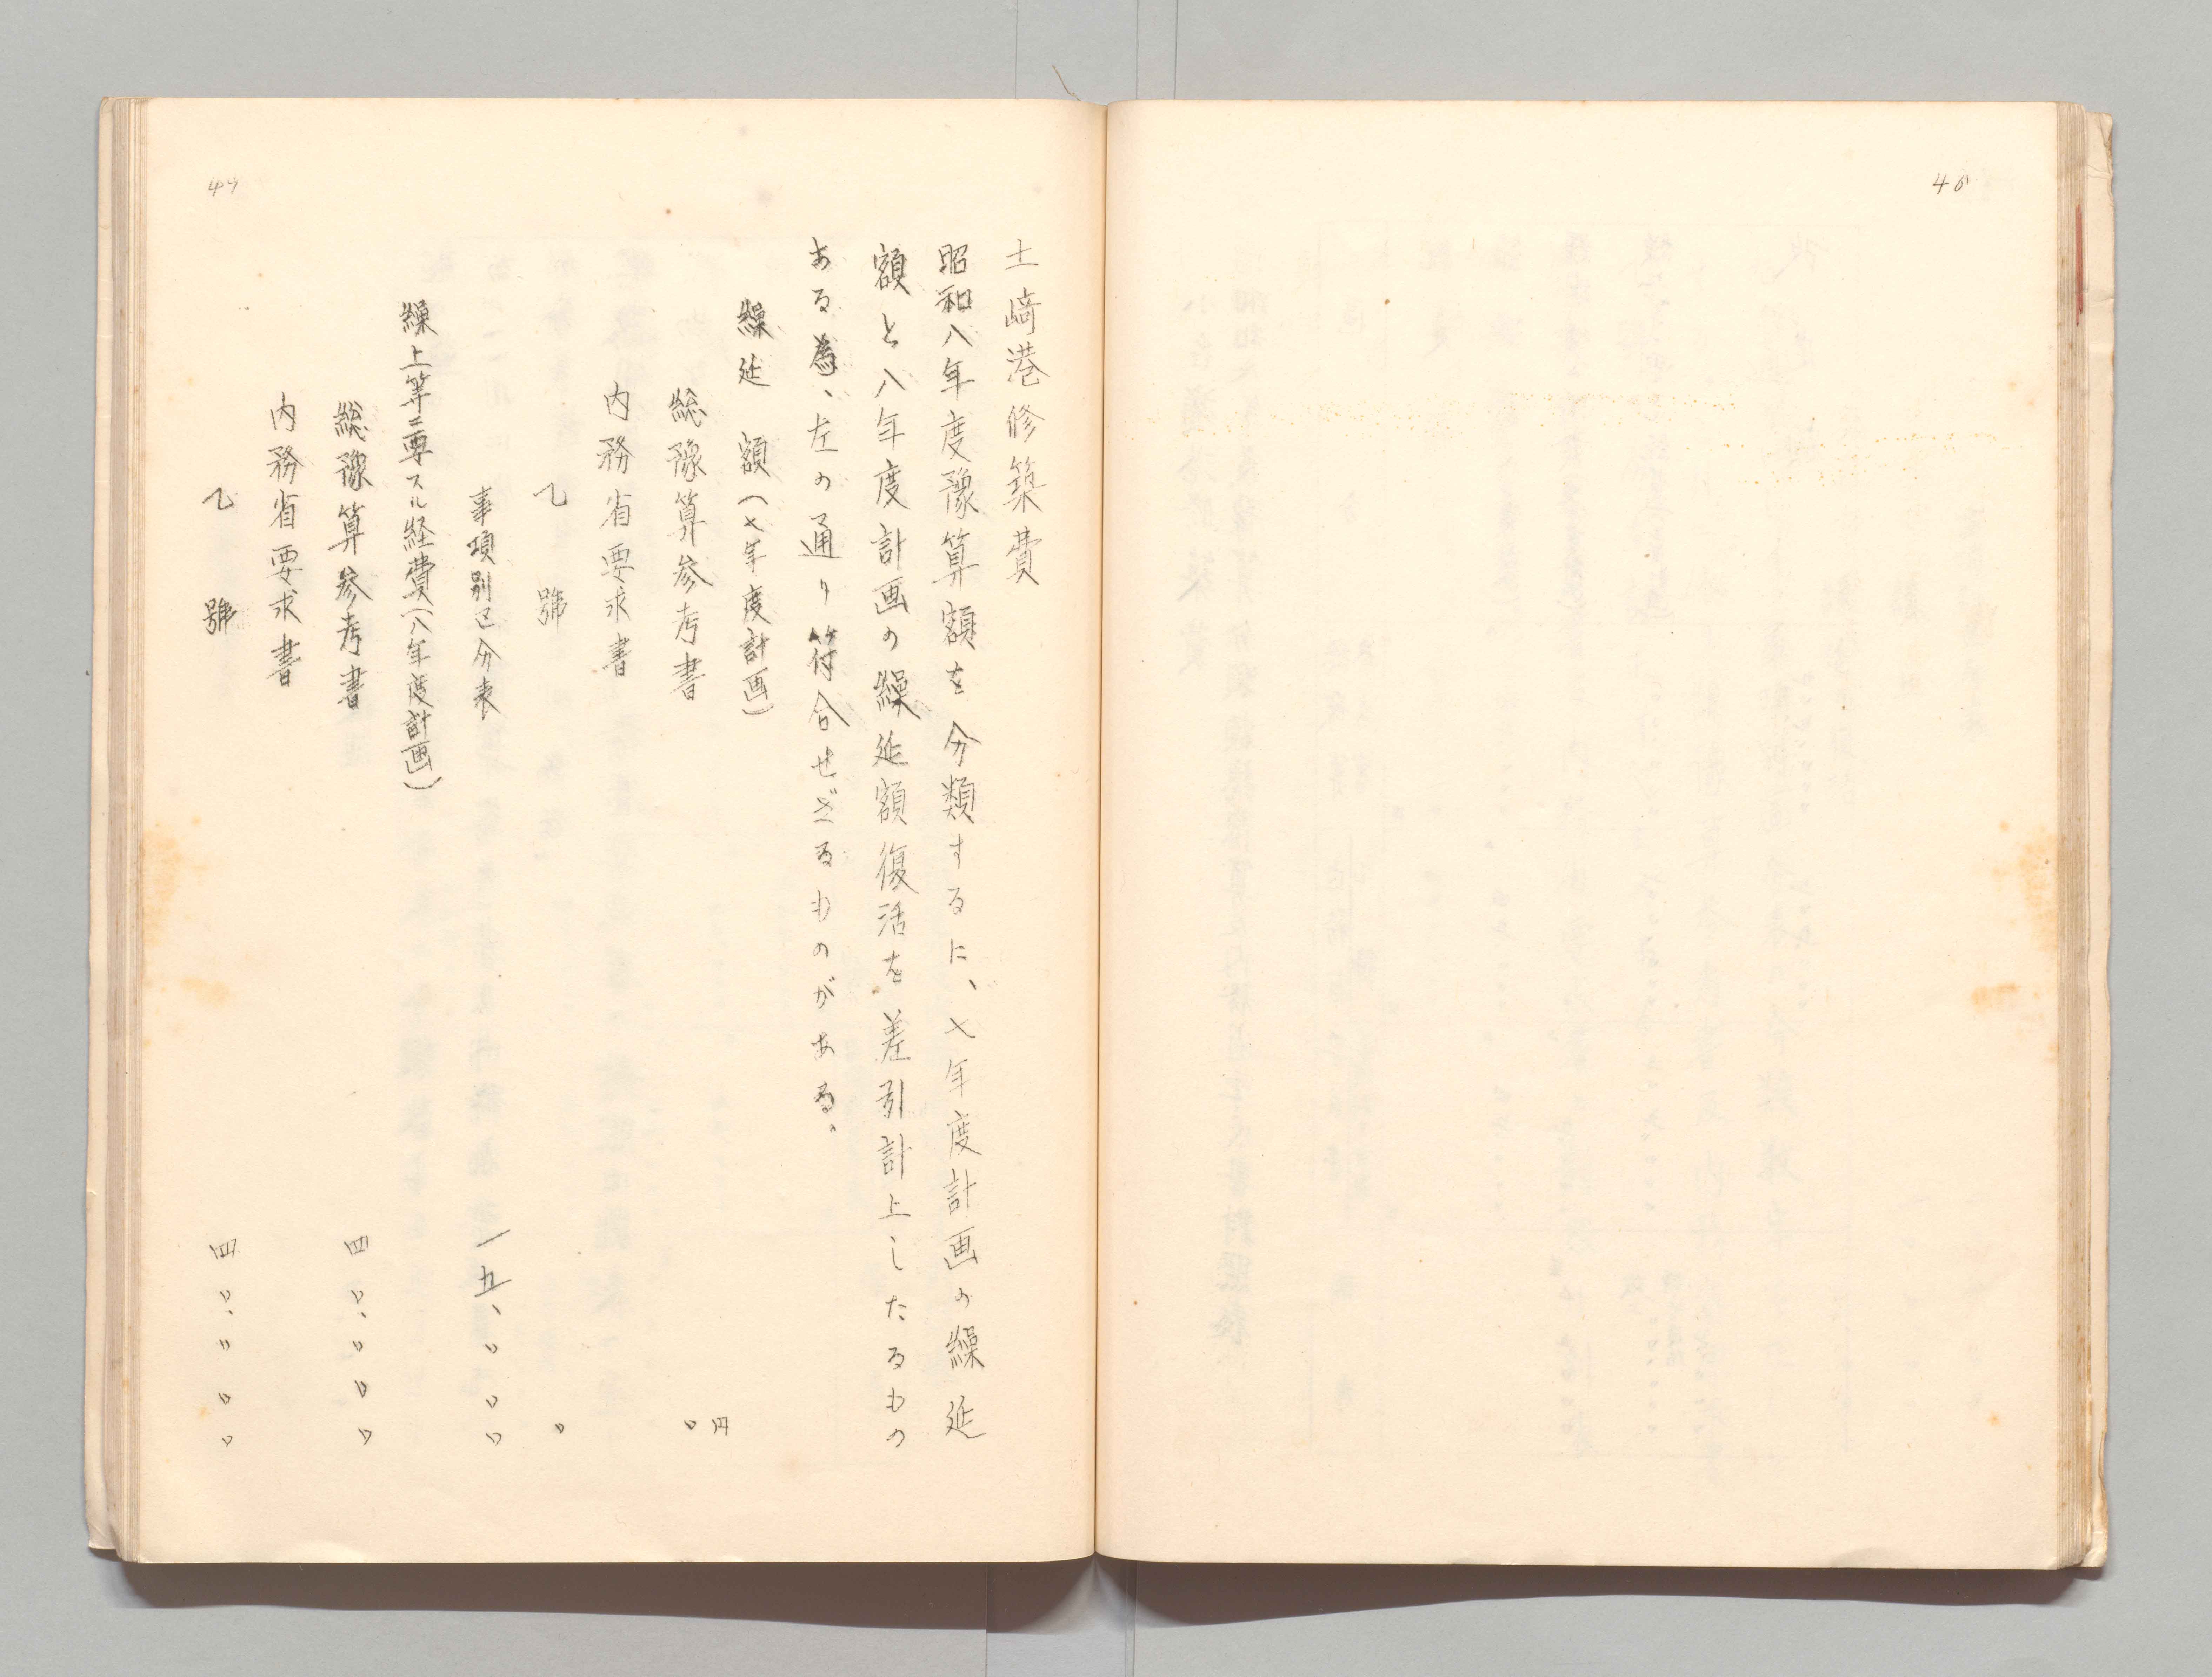 46
土崎港修築費
昭和八年度豫算額を分類するに、七年度計画の繰延
額と八年度計画の繰延額復活を差引計上したるもの
ある為、左の通り符合せざるものがある。
繰延額(七年度計画)
円
総豫算参考書 〇
内務省要求書
乙號 〇
事項別区分表 一五、〇〇〇
繰上等ニ要スル経費(八年度計画)
総豫算参考書 四〇、〇〇〇
内務省要求書
乙號 四〇、〇〇〇
47